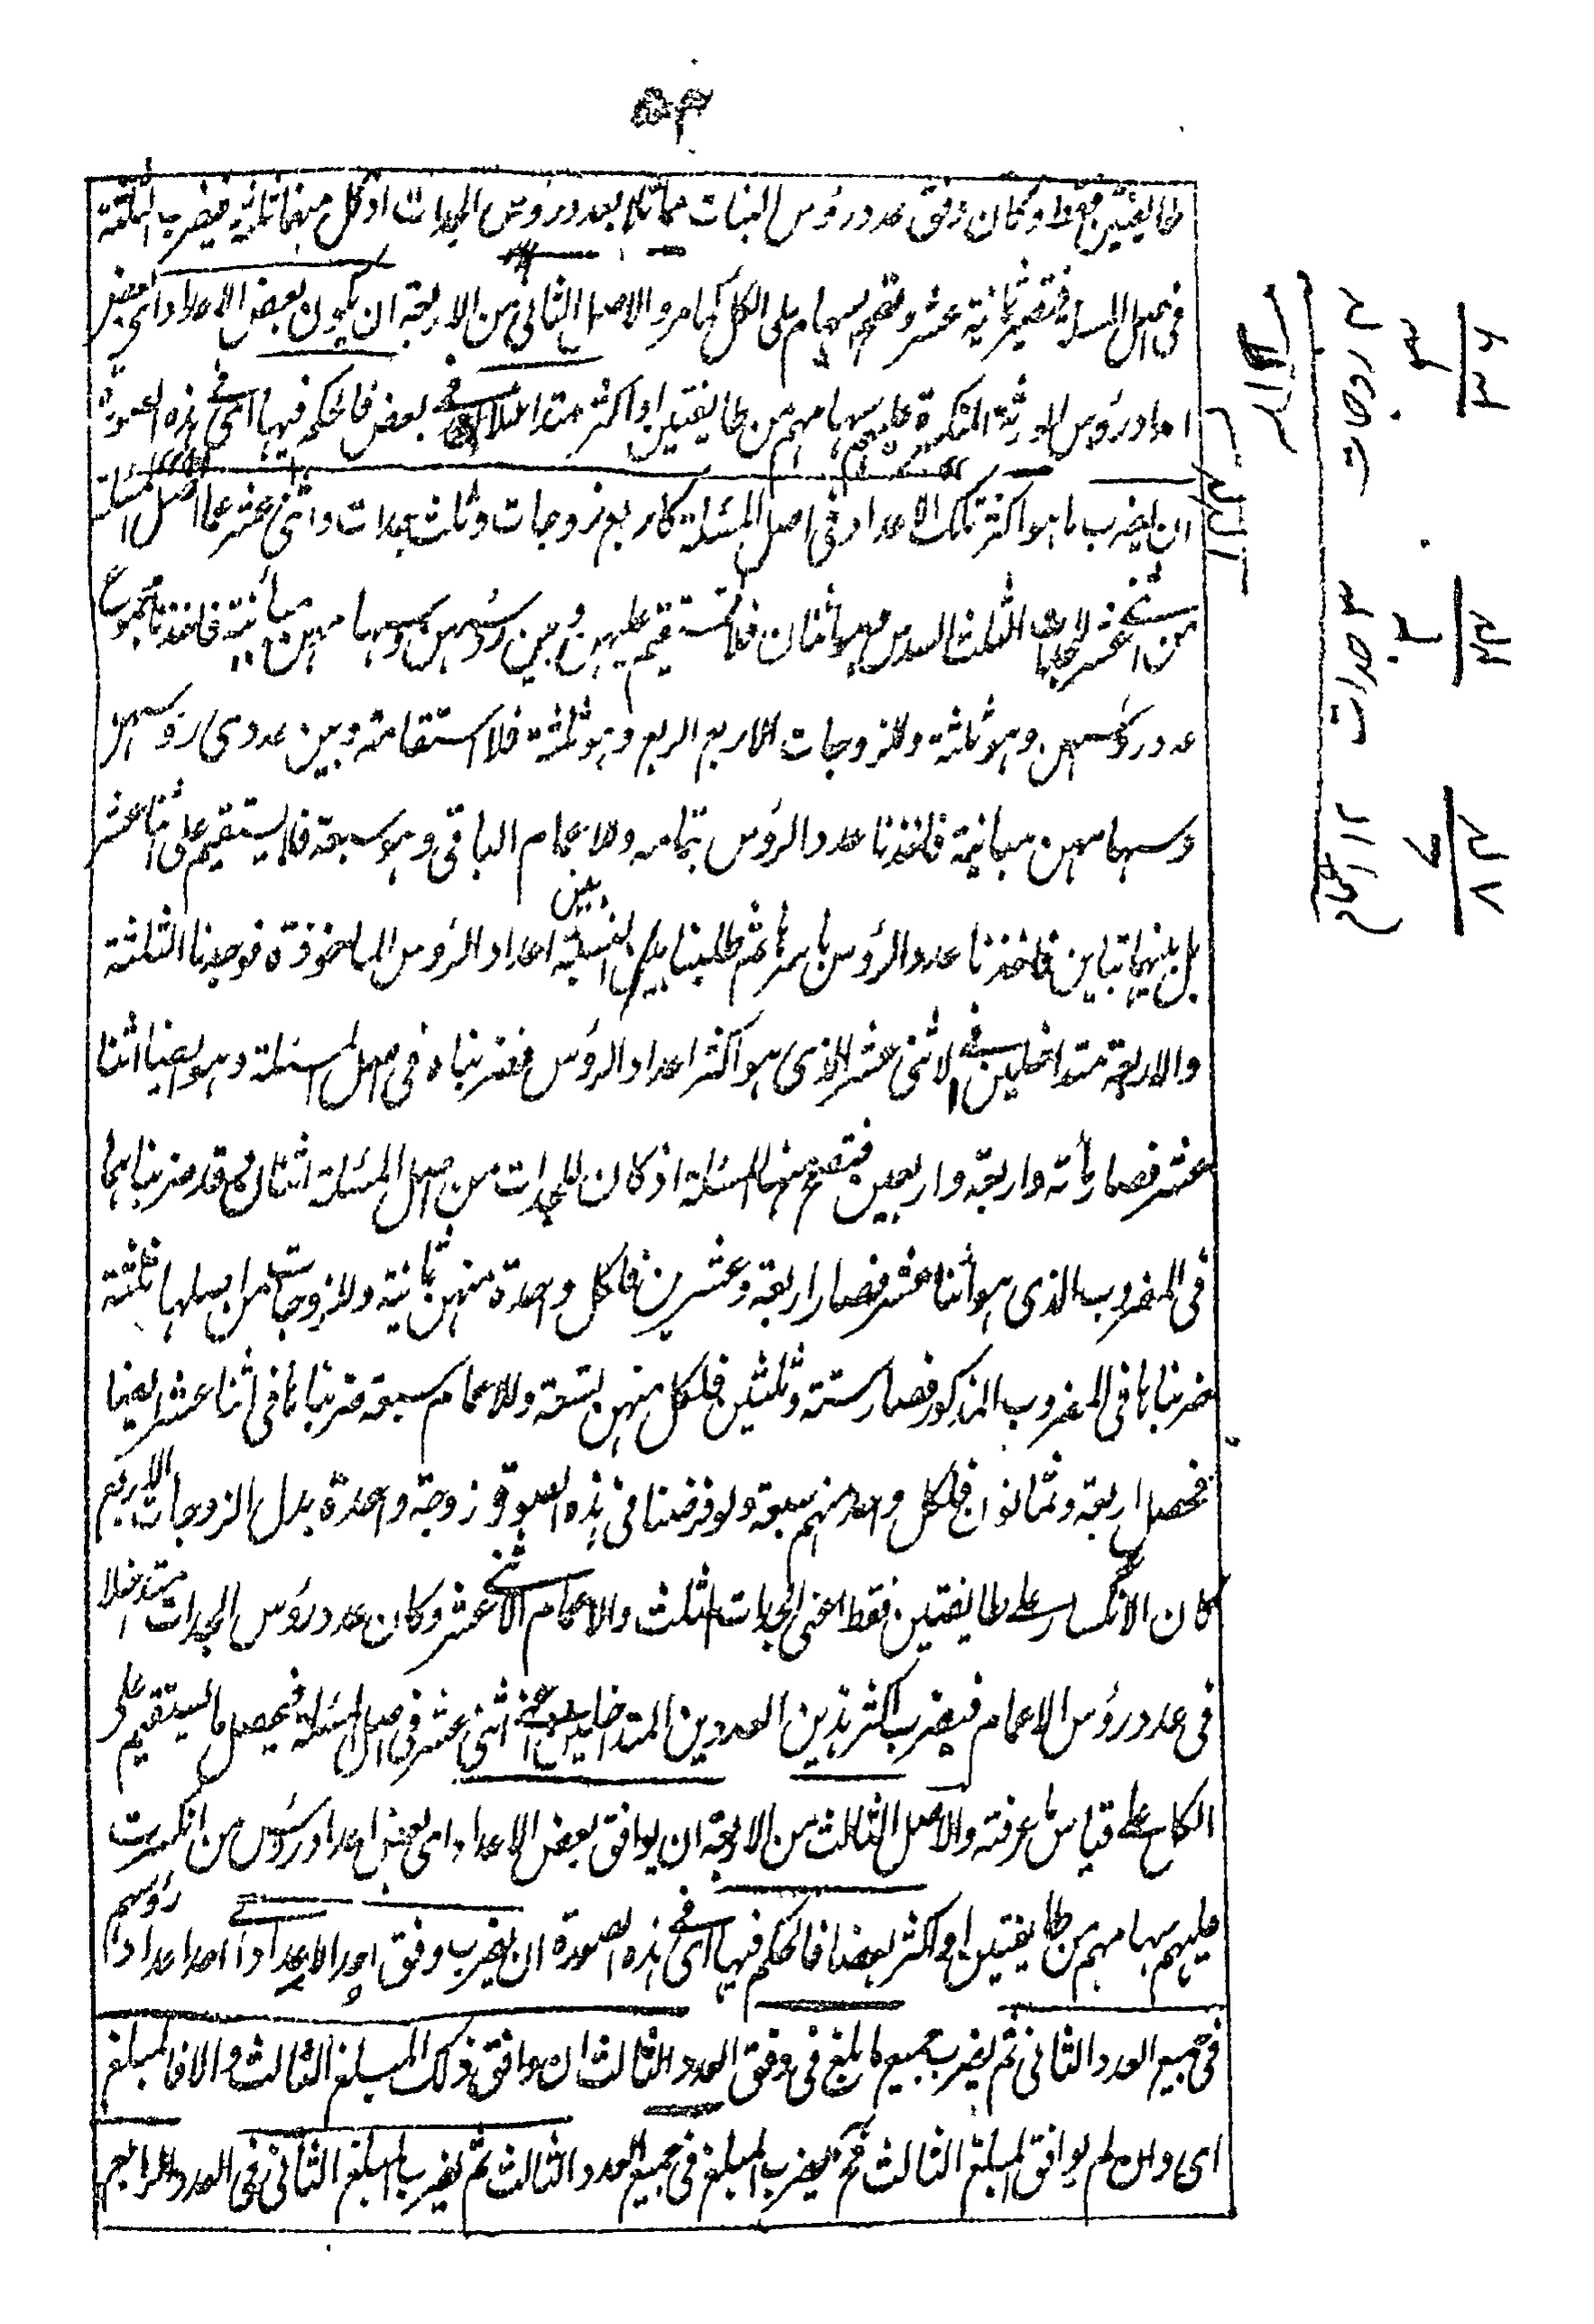 طايفتين فقط وكان وفق عدد رؤس البنات مماثلا بعدد رؤس الجدات اذ كل منهما ثلثة فيضرب الثلثة
في اصل المسئلة فتصير ثمانية عشر وتصح سهام على الكل كما مر والاصل الثاني من الاربعة ان يكون بعض الاعداد اى بعض
اعداد رؤس الورثة المنكسرة عليهم سهامهم من طايفتين او اكثر متداخلا في بعض فالحكم فيها اى في هذه الصورة
ان يضرب ما هو اكثر تلك الاعداد في اصل المسئلة كاربع زوجات وثلث جدات واثنى عشر عما اصل المسئلة
من اثنى عشر للجدات الثلث السدس وهو اثنان فلا تستقيم عليهن وبين رؤسهن وسهامهن مباينة فاخذنا مجموع
عدد رؤسهن وهو ثلثة وللزوجات الاربع الربع وهو ثلثة فلا استقامة وبين عددى رؤسهن
وسهامهن مباينة فاخذنا عدد الرؤس بتمامه وللاعمام الباقى وهو سبعة فلا يستقيم على اثنا عشر
بل بينهما تباين فاخذنا عدد الرؤس باسرها ثم طلبنا النسبة بين اعداد الرؤس الماخوذة فوجدنا الثلثة
والاربعة متداخلين في الاثنى عشر الذى هو اكثر اعداد الرؤس فضربناه في اصل المسئلة وهو ايضا اثنا
عشر فصار مأته واربعة واربعين فتصح منها المسئلة اذ كان للجدات من اصل المسئلة اثنان قد ضربناهما
في المضروب الذى هو اثنا عشر فصار اربعة وعشرين فلكل واحدة منهن ثمانية وللزوجات من اصلها ثلثة
ضربناها في المضروب المذكور فصار ستة وثلثين فلكل منهن تسعة وللاعمام سبعة ضربناها في اثنا عشر ايضا
فحصل اربعة وثمانون فلكل واحد منهم سبعة ولو فرضنا في هذه الصورة زوجة واحدة بدل الزوجات الاربع
كان الانكسار على طايفتين فقط اعنى الجدات الثلث والاعمام الاثنى عشر وكان عدد رؤس الجدات متداخلا
في عدد رؤس الاعمام فيضرب اكثر هذين العددين المتداخلين اعنى اثنى عشر في اصل المسئلة فيحصل ما يستقيم على
الكل على قياس ما عرفته والاصل الثالث من الاربعة ان يوافق بعض الاعداد اى بعض اعداد رؤس من انكسرت
عليهم سهامهم من طايفتين او اكثر بعضا فالحكم فيها اى في هذه الصورة ان يضرب وفق احد الاعداد اى احد اعداد رؤسهم
في جميع العدد الثانى ثم يضرب جميع ما بلغ في وفق العدد الثالث ان وافق ذلك المبلغ الثالث والا فالمبلغ
اى وان لم يوافق المبلغ الثالث فح يضرب المبلغ في جميع العدد الثالث ثم يضرب المبلغ الثانى في العدد الرابع
٤ زوجات ٣ جدات ١٢ اعمام
٣ ٢ ٧
٣٦ ٢٤ ٨٤